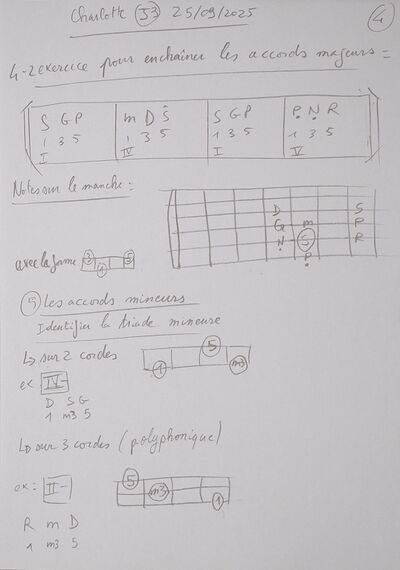 Charlotte 53 25/09/2025
4
4-2 exercice pour enchaîner les accords majeurs =
S G P m D S S G P P N R
1 3 5 1 3 5 1 3 5 1 3 5
I IV I V
Notes sur le manche =
D S
G m P
N S R
P
avec la forme 3 1 5
5 Les accords mineurs
Identifier la triade mineure
↳ sur 2 cordes
1 5 m3
ex IV-
D S G
1 m3 5
↳ sur 3 cordes (polyphonique)
ex : II-
5 m3 1
R m D
1 m3 5